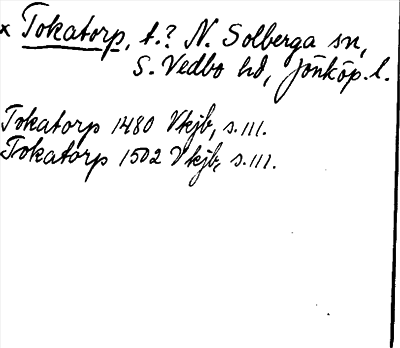 x Tokatorp, t.? N. Solberga sn,
S. Vedbo hd, Jönköp. l.
Tokatorp 1480 Vkjb, s. 111.
Tokatorp 1502 Vkjb, s. 111.